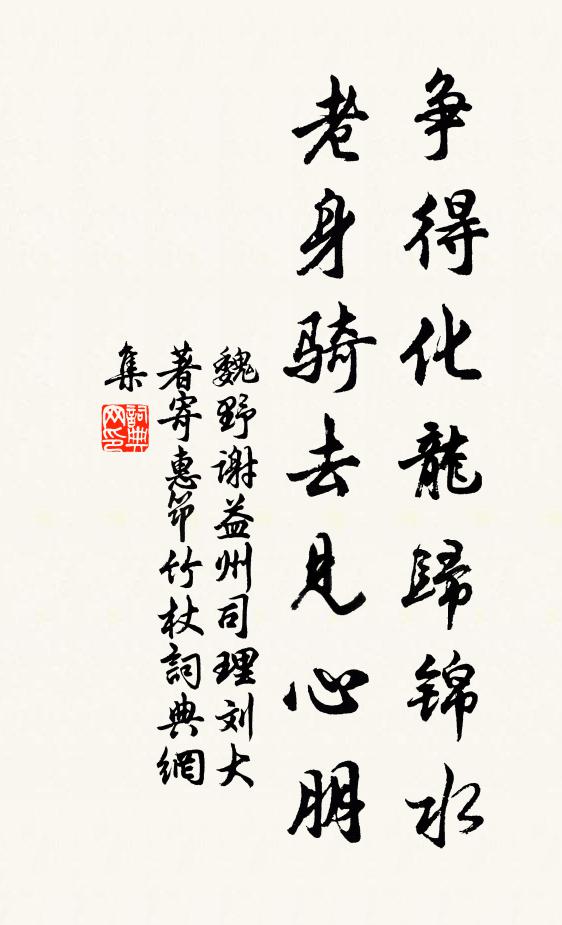 争得化龍歸锦水
老身骑去見心朋
魏野谢益州司理刘大
著寄惠笻竹杖詞典網
集
詞典
网印